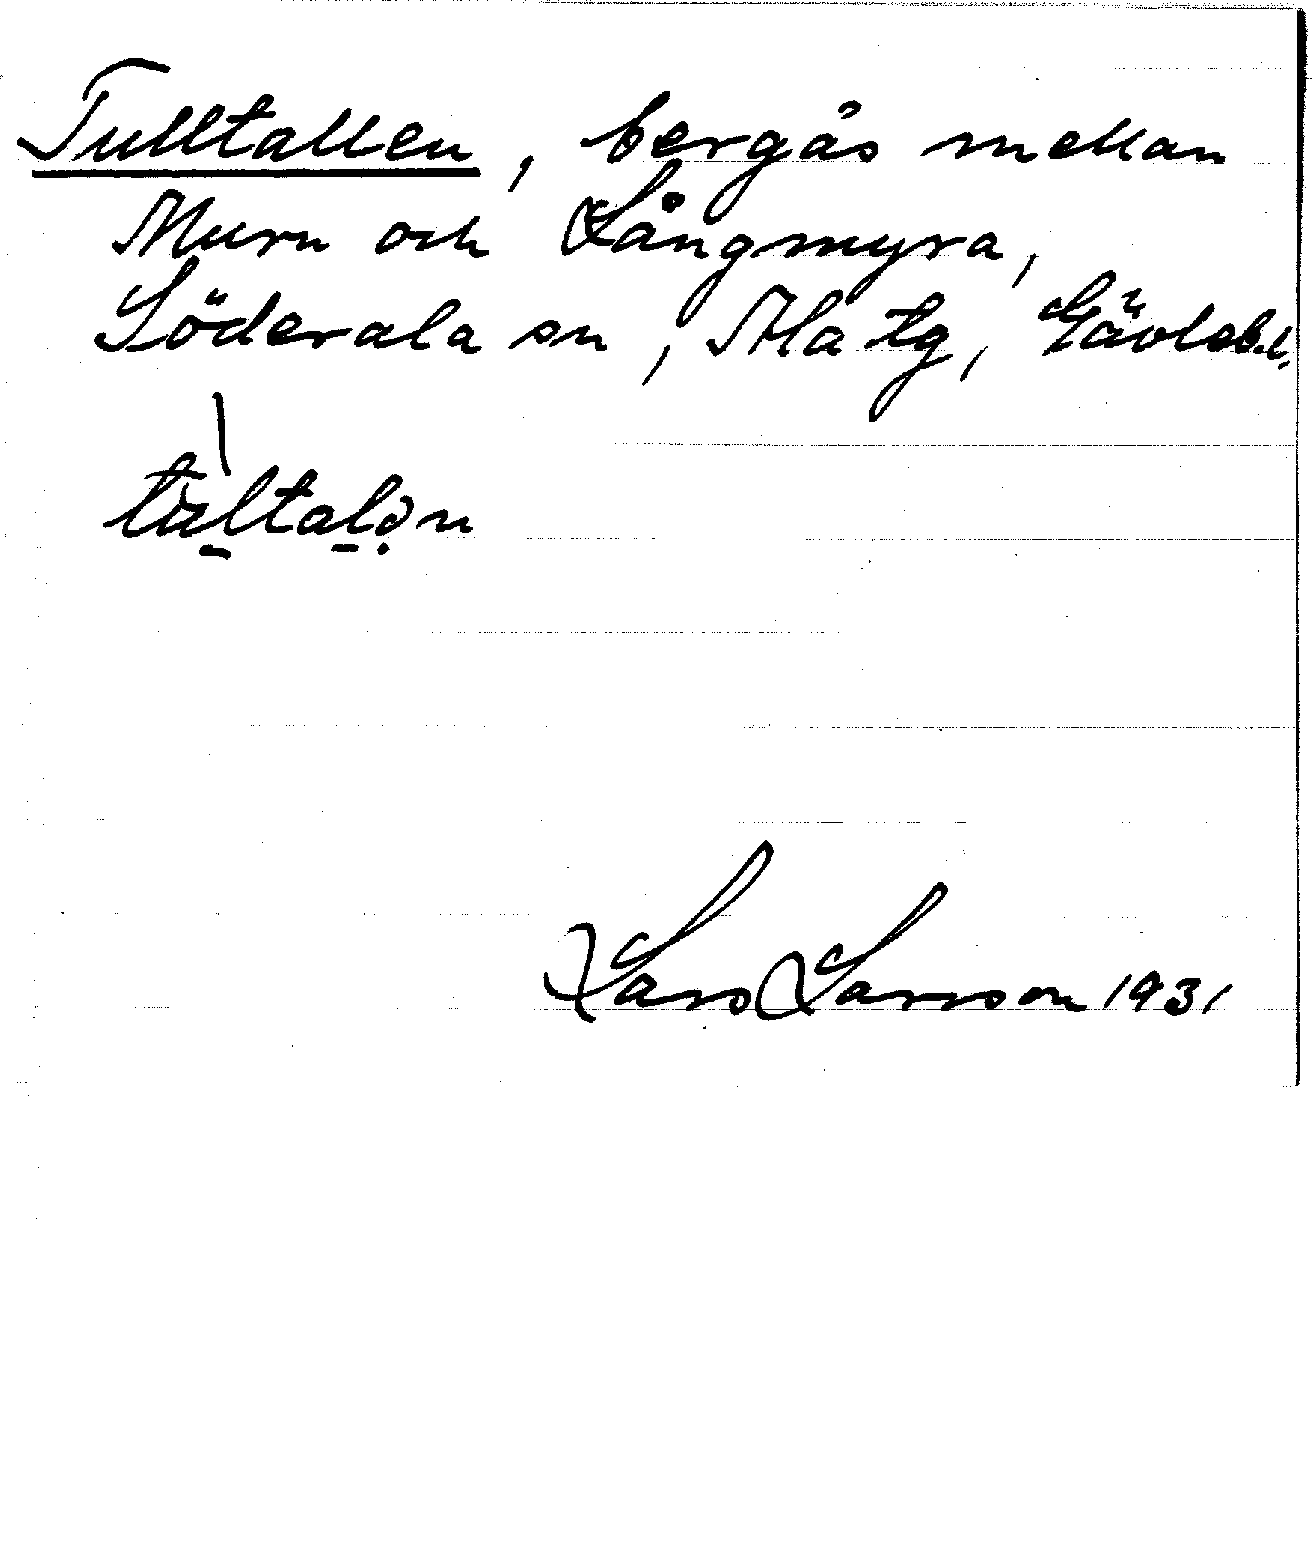 Tulltallen, bergås mellan
Murn och Långmyra,
Söderala sn, Ala tg, Gävleb.l.
Lars Larsson 1931